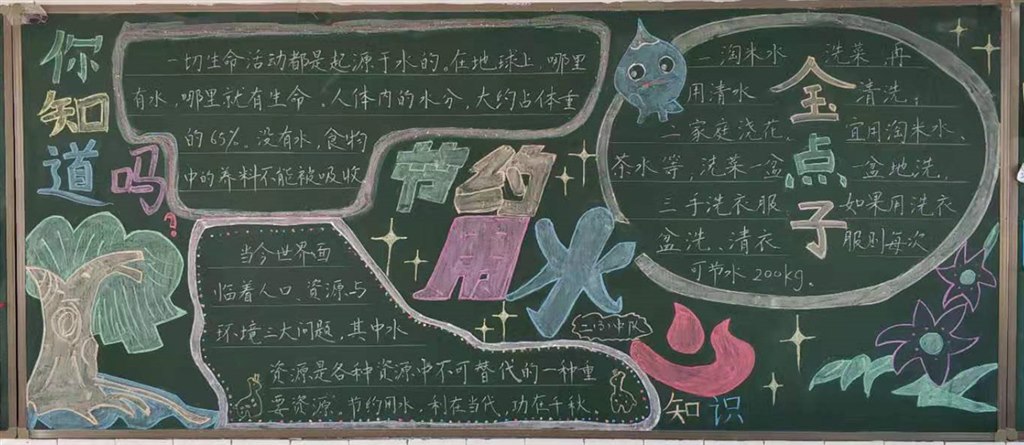 你知道吗？
一切生命活动都是起源于水的。在地球上，哪里
有水，哪里就有生命。人体内的水分，大约占体重
的65%。没有水，食物
中的养料不能被吸收
节约
用水
当今世界面
临着人口、资源与
环境三大问题，其中水
资源是各种资源中不可替代的一种重
要资源。节约用水，利在当代，功在千秋
金点子
一淘米水 洗菜，再
用清水 清洗；
二家庭浇花 宜用淘米水、
茶水等，洗菜一盆 一盆地洗，
三手洗衣服 如果用洗衣
盆洗、清衣 服则每次
可节水200kg。
知识